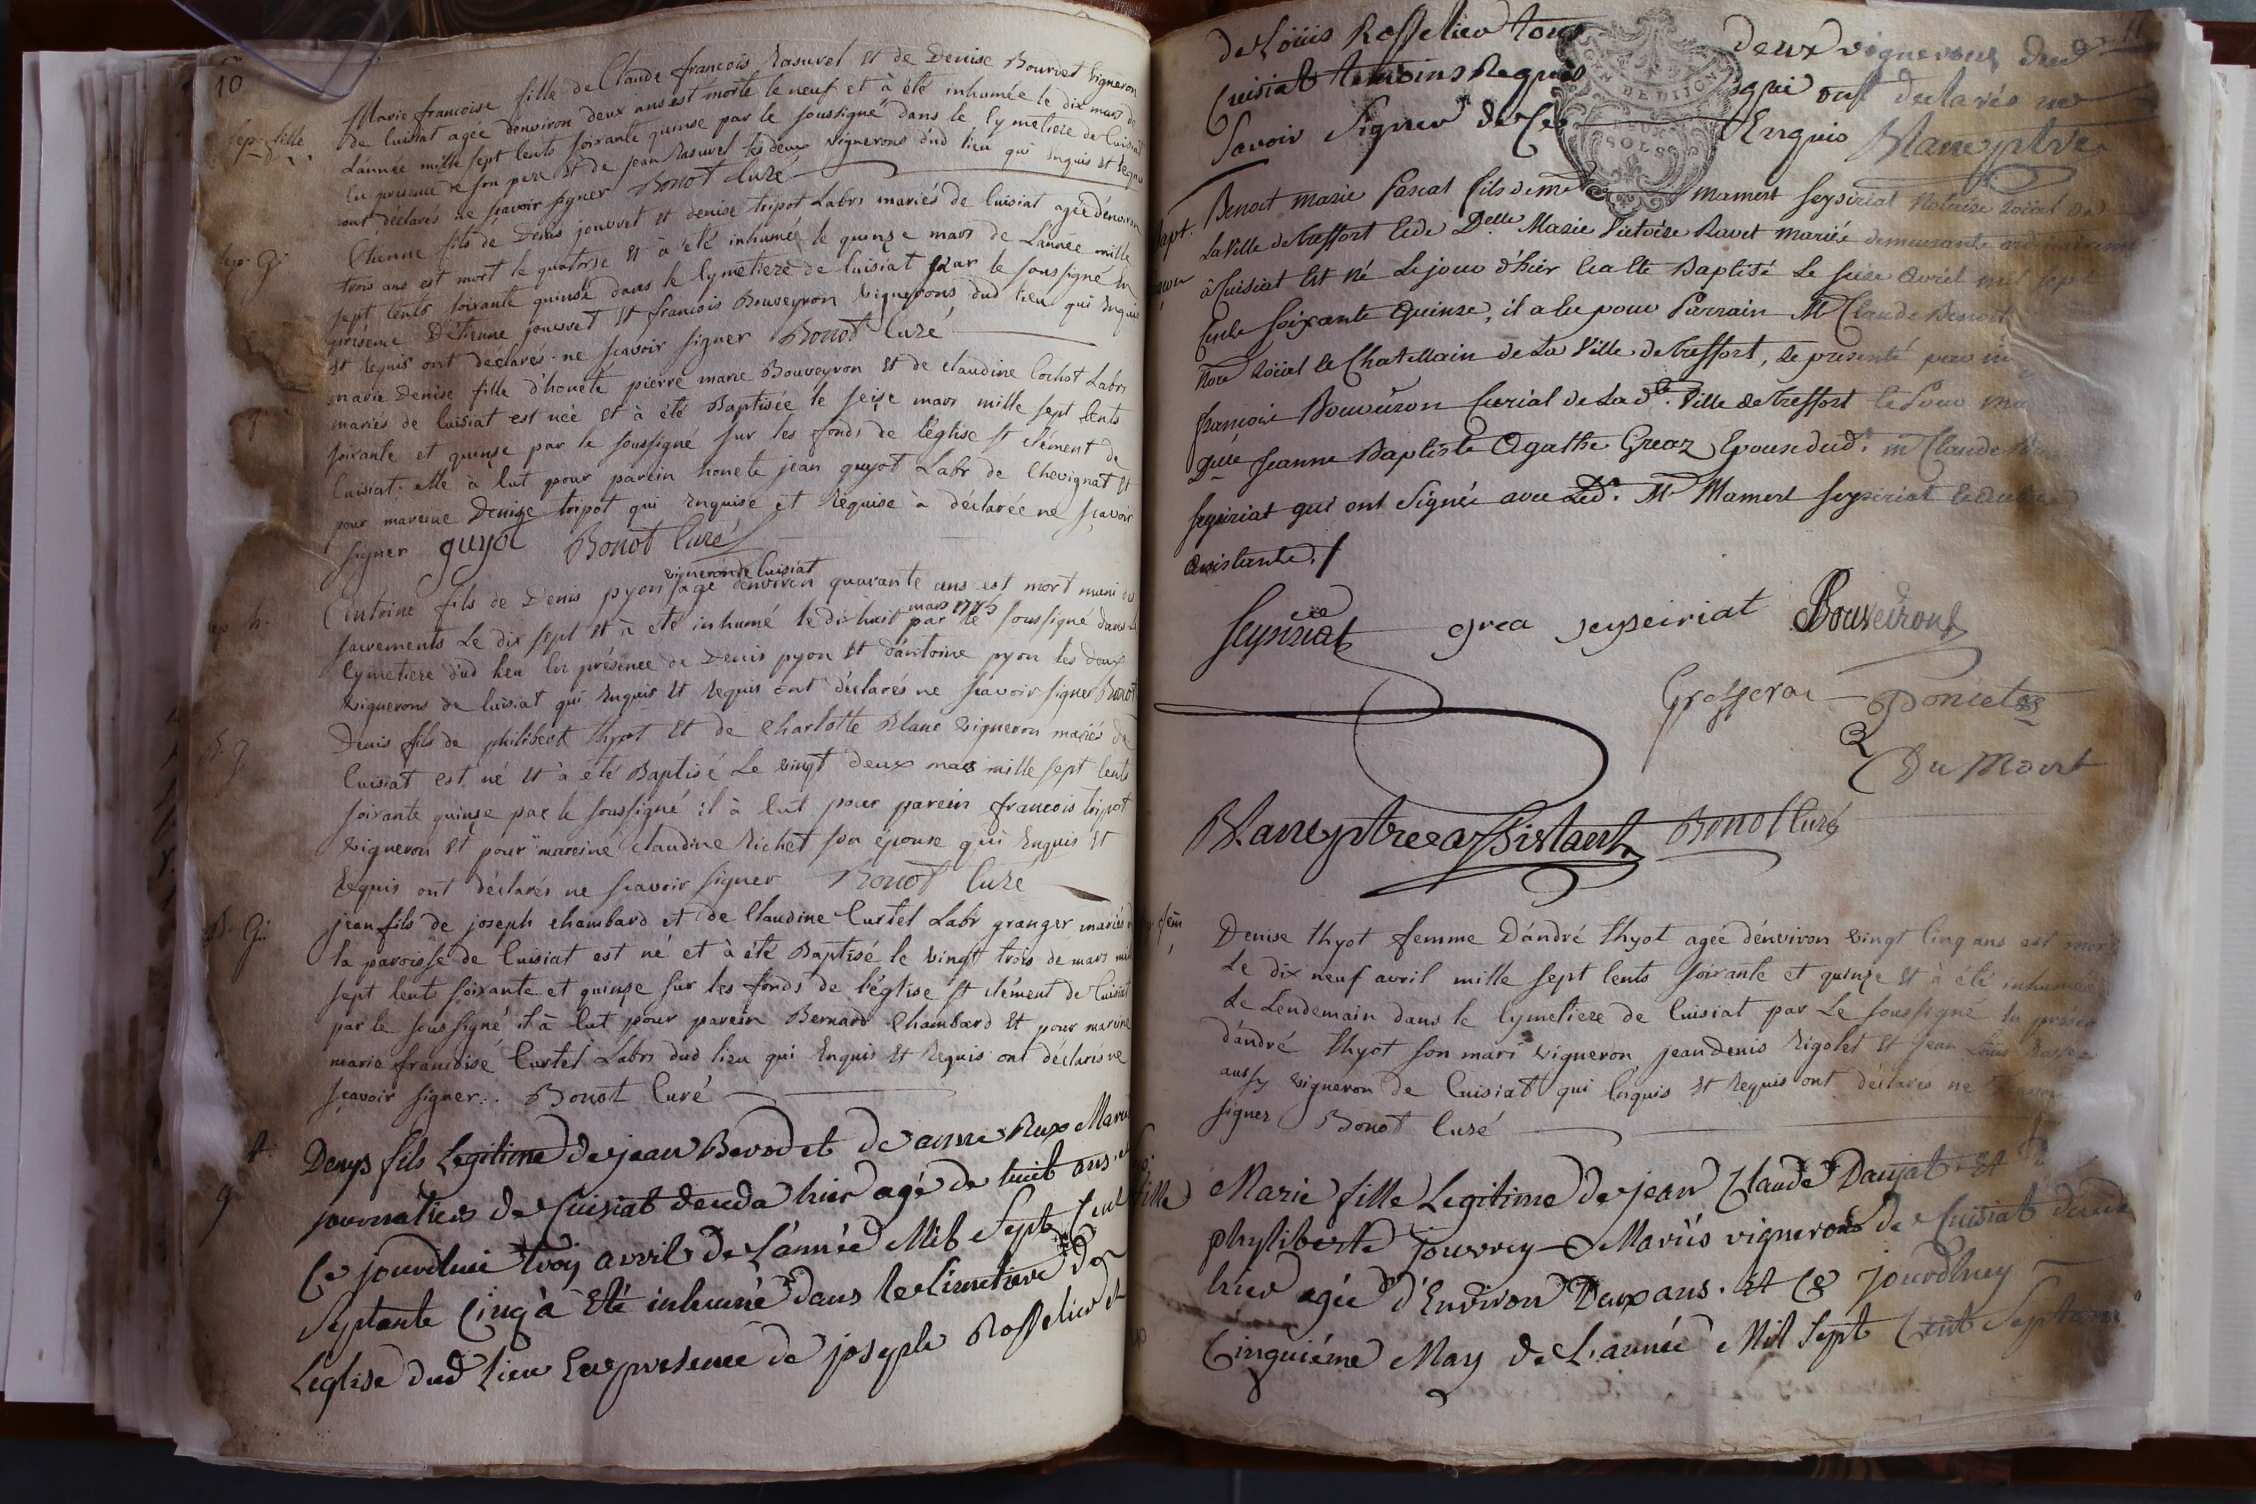 10
sep. fille
Marie francoise fille de Claude francois Rasuvel et de Denise Bourdet Vigneron
de Cuisiat agée d'environ deux ans est morte le neuf et à été inhumée le dix mars de
L'année mille sept Cents soixante quinse par le soussigné dans le Cymetiere de Cuisiat
En presence de son pere et de jean Rasuvel les deux vignerons dud lieu qui Enquis et Requis
ont déclarés ne sçavoir signer Bonot Curé
sep. g.
Etienne fils de Denis jouvret et denise tripot Labrs mariés de Cuisiat agée d'environ
trois ans est mort le quatorse et à été inhumée le quinse mars de L'année mille
sept Cents soixante quinse dans le Cymetiere de Cuisiat par le soussigné En
présence D'étienne jouvret et francois Bouveyron vignerons dud lieu qui Enquis
et Requis ont déclarés ne sçavoir signer Bonot Curé
marie Denise fille d'honete pierre marie Bouveyron et de claudine Cochot Labrs
mariés de Cuisiat est née et à été Baptisée le seise mars mille sept Cents
soixante et quinse par le soussigné sur les fonds de l'église st clément de
Cuisiat; elle à Eut pour parein honete jean guyot Labr de Chevignat et
pour mareine Denise tripot qui Enquise et Requise à déclarée ne sçavoir
signer guyot Bonot Curé
vigneron de Cuisiat
h.
Antoine fils de Denis pyon agé d'environ quarante ans est mort muni des
mars 1775
sacrements Le dix sept et à été inhumé le dixhuit par le soussigné dans le
Cymetiere dud lieu En présence de Denis pyon et d'antoine pyon les deux
vignerons de Cuisiat qui Enquis et Requis ont déclarés ne sçavoir signer Bonot
B. g
Denis fils de philibert thyot et de Charlotte Blanc vigneron mariés de
Cuisiat est né et à été Baptisé Le vingt deux mars mille sept Cents
soixante quinse par le soussigné il à Eut pour parein francois tripot
vigneron et pour mareine claudine Richet son épouse qui Enquis et
Requis ont déclarés ne sçavoir signer Bonot Curé
B. g.
jean fils de joseph chambard et de Claudine Curtet Labr granger mariés
la paroisse de Cuisiat est né et à été Baptisé le vingt trois de mars
sept Cents soixante et quinse sur les fonds de l'église st clément de Cuisiat
par le soussigné il à Eut pour parein Bernard Chambard et pour mareine
marie francoise Curtet Labrs dud lieu qui Enquis et Requis ont déclarés ne
sçavoir signer.. Bonot Curé
g
Denys fils Legitime de jean Berodet de anne Rux Mariés
journaliers de Cuisiat deceda hier agé de huit ans et
Ce jourdhui trois avril de L'année Mil Sept Cent
Septante Cinq à Eté inhumé dans le Cimetiere de
Leglise dud lieu En presence de joseph Rosselier et
11
de Loüis Rosselier tous deux vignerons dud
Cuisiat temoins Requis qui ont declarés ne
Savoir Signer de Ce Enquis Vaneyptre
DE DIJON
DEUX
SOLS
Bapt.
Benoit Marie Pascal fils de me Mamert Seyseiriat Notaire Roïal de
La Ville de treffort Et de Delle Marie Victoire Ravet mariée demeurante ordinairement
à Cuisiat Est Né Le jour d'hier Et a Ete Baptisé Le seise Avril mil sept
Cents Soixante Quinse, il a Eu pour Parrain Mr Claude Benoit
Nore Roïal Et Chatellain de La Ville de treffort, Representé par me
françois Bouveiron Curial de La de. Ville de treffort Et Pour
Delle jeanne Baptiste Agathe Greaz Epouse dud. me Claude
Seyseiriat qui ont Signés avec Led. Mr Mamert Seyseiriat
assistante./
Seyseiriat grea seyseiriat Bouveiron
Du Mont
Vaneyptre assistant Bonot Curé
fem
Denise thyot femme D'andré thyot agée d'environ vingt Cinq ans est morte
Le dix neuf avril mille sept Cents soixante et quinse et à été inhumée
Le Lendemain dans le Cymetiere de Cuisiat par Le soussigné En présence
d'andré thyot son mari vigneron jean Denis Rigolet et jean Loüis
aussy vigneron de Cuisiat qui Enquis et Requis ont déclarés ne
signer Bonot Curé
fille
Marie fille Legitime de jean Claude Daujat et
phyliberte jouvrey Mariés vignerons de Cuisiat deceda
hier agée d'Environ Deux ans. Et Ce jourd'huy
Cinquiéme May de L'année Mil Sept Cent Septante